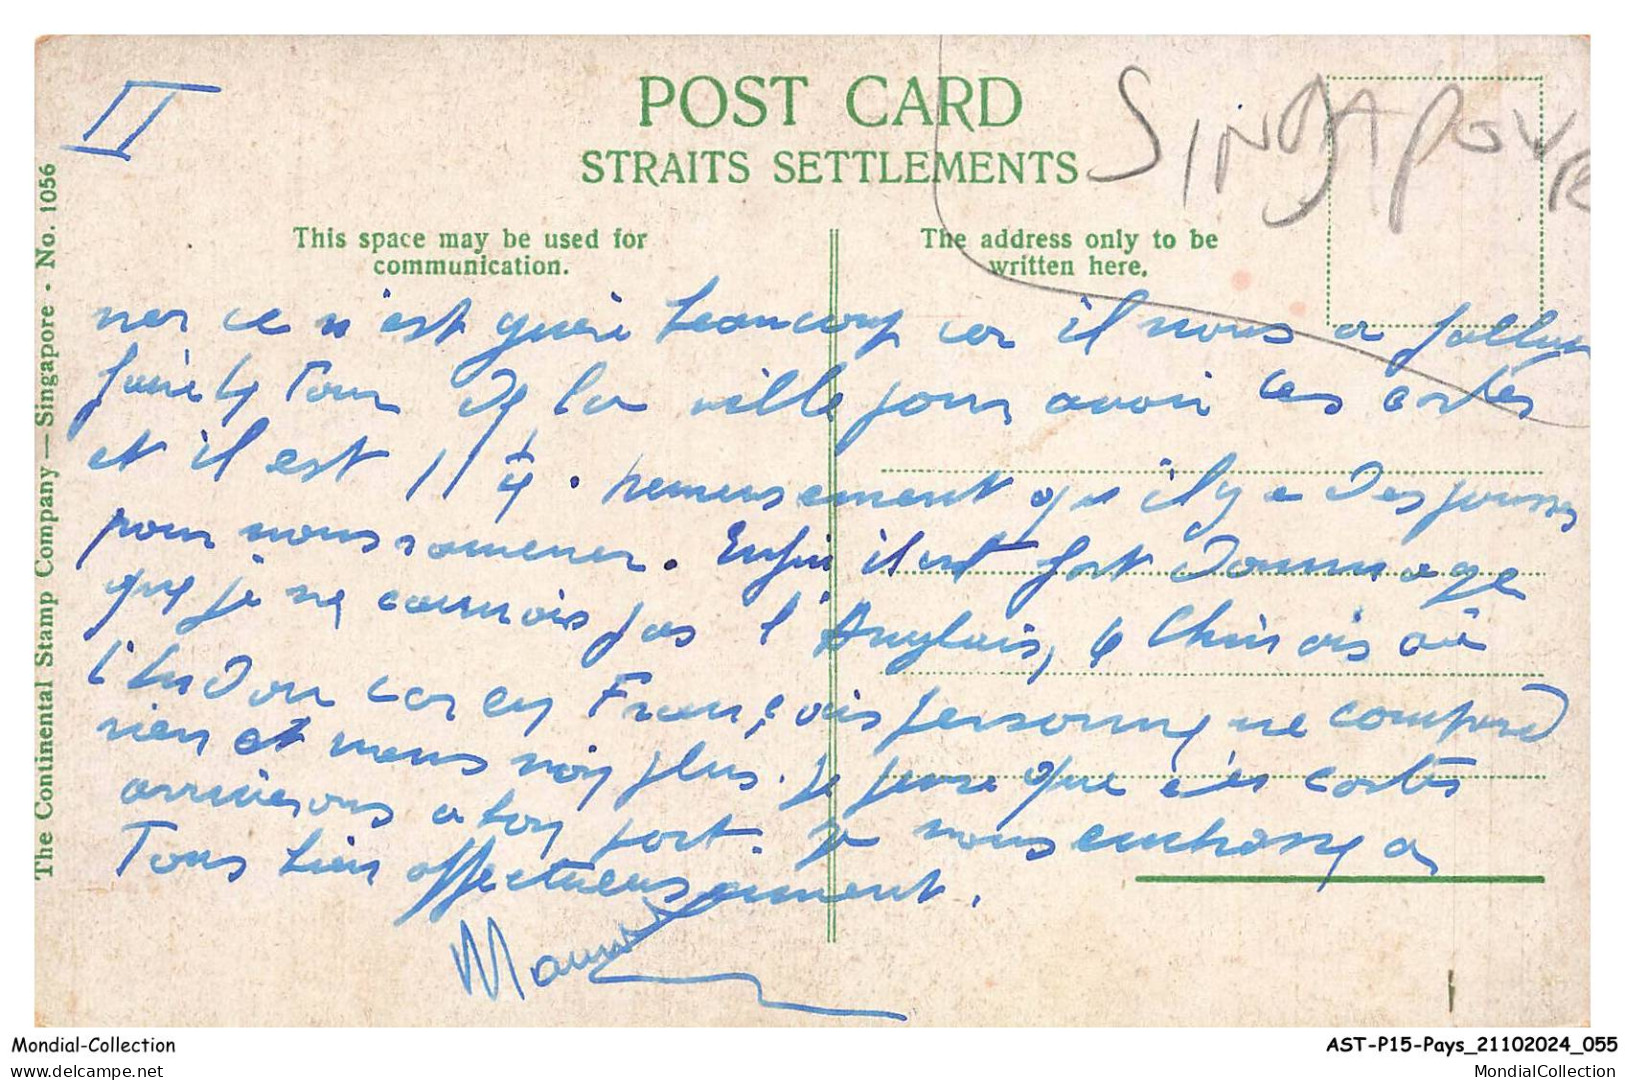 II
POST CARD
STRAITS SETTLEMENTS
SINGAPOUR
This space may be used for
communication.
The address only to be
written here.
The Continental Stamp Company — Singapore - No. 1056
ner ce n'est guère beaucoup car il nous a fallu
faire le Tour de la ville pour avoir ces cartes
et il est 11 1/4. heureusement qu'il y a des pousses
pour nous ramener. Enfin il est fort dommage
que je ne connais pas l'Anglais, le Chinois ou
l'Indou car en Français personne ne comprend
rien et nous non plus. Je pense que ces cartes
arriverons a bon port. Je vous embrasse
Tous bien affectueusement.
Maurice
Mondial-Collection
delcampe.net
AST-P15-Pays_21102024_055
MondialCollection